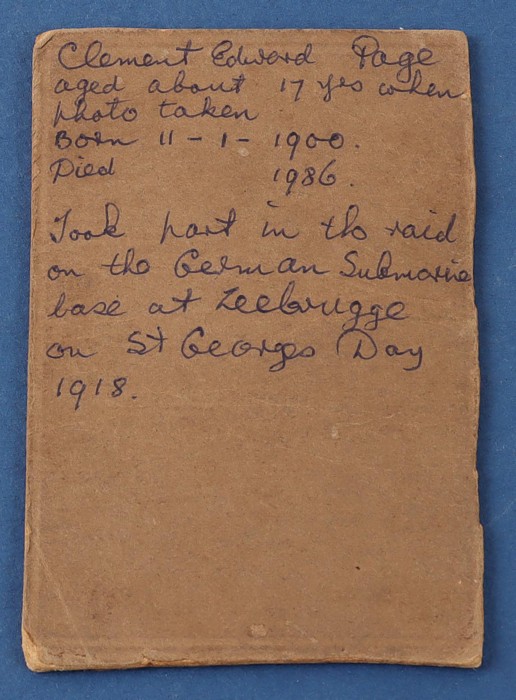 Clement Edward Page
aged about 17 yrs when
photo taken
Born 11 - 1 - 1900.
Died 1986.
Took part in the raid
on the German Submarine
base at Zeebrugge
on St Georges Day
1918.